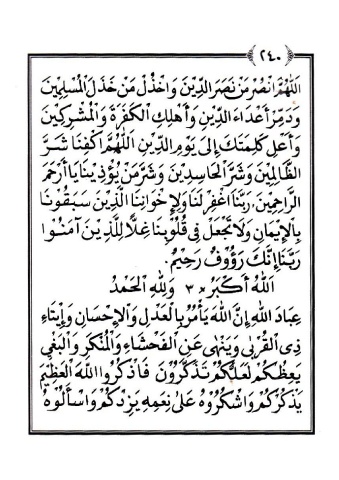 ٢٤٠
اَللّٰهُمَّ انْصُرْ مَنْ نَصَرَ الدِّيْنَ وَاخْذُلْ مَنْ خَذَلَ الْمُسْلِمِيْنَ
وَدَمِّرْ أَعْدَاءَ الدِّيْنِ وَأَهْلِكِ الْكَفَرَةَ وَالْمُشْرِكِيْنَ
وَأَعْلِ كَلِمَتَكَ إِلَى يَوْمِ الدِّيْنِ اَللّٰهُمَّ اكْفِنَا شَرَّ
الظَّالِمِيْنَ وَشَرَّ الْحَاسِدِيْنَ وَشَرَّ مَنْ يُؤْذِيْنَا يَا أَرْحَمَ
الرَّاحِمِيْنَ رَبَّنَا اغْفِرْ لَنَا وَلِإِخْوَانِنَا الَّذِيْنَ سَبَقُوْنَا
بِالْإِيْمَانِ وَلَا تَجْعَلْ فِي قُلُوْبِنَا غِلًّا لِلَّذِيْنَ آمَنُوْا
رَبَّنَا إِنَّكَ رَؤُوْفٌ رَحِيْمٌ.
اَللّٰهُ أَكْبَرُ × ٣ وَلِلّٰهِ الْحَمْدُ
عِبَادَ اللهِ إِنَّ اللهَ يَأْمُرُ بِالْعَدْلِ وَالْإِحْسَانِ وَإِيْتَاءِ
ذِى الْقُرْبَى وَيَنْهَى عَنِ الْفَحْشَاءِ وَالْمُنْكَرِ وَالْبَغْيِ
يَعِظُكُمْ لَعَلَّكُمْ تَذَكَّرُوْنَ فَاذْكُرُوا اللهَ الْعَظِيْمَ
يَذْكُرْكُمْ وَاشْكُرُوْهُ عَلَى نِعَمِهِ يَزِدْكُمْ وَاسْأَلُوْهُ